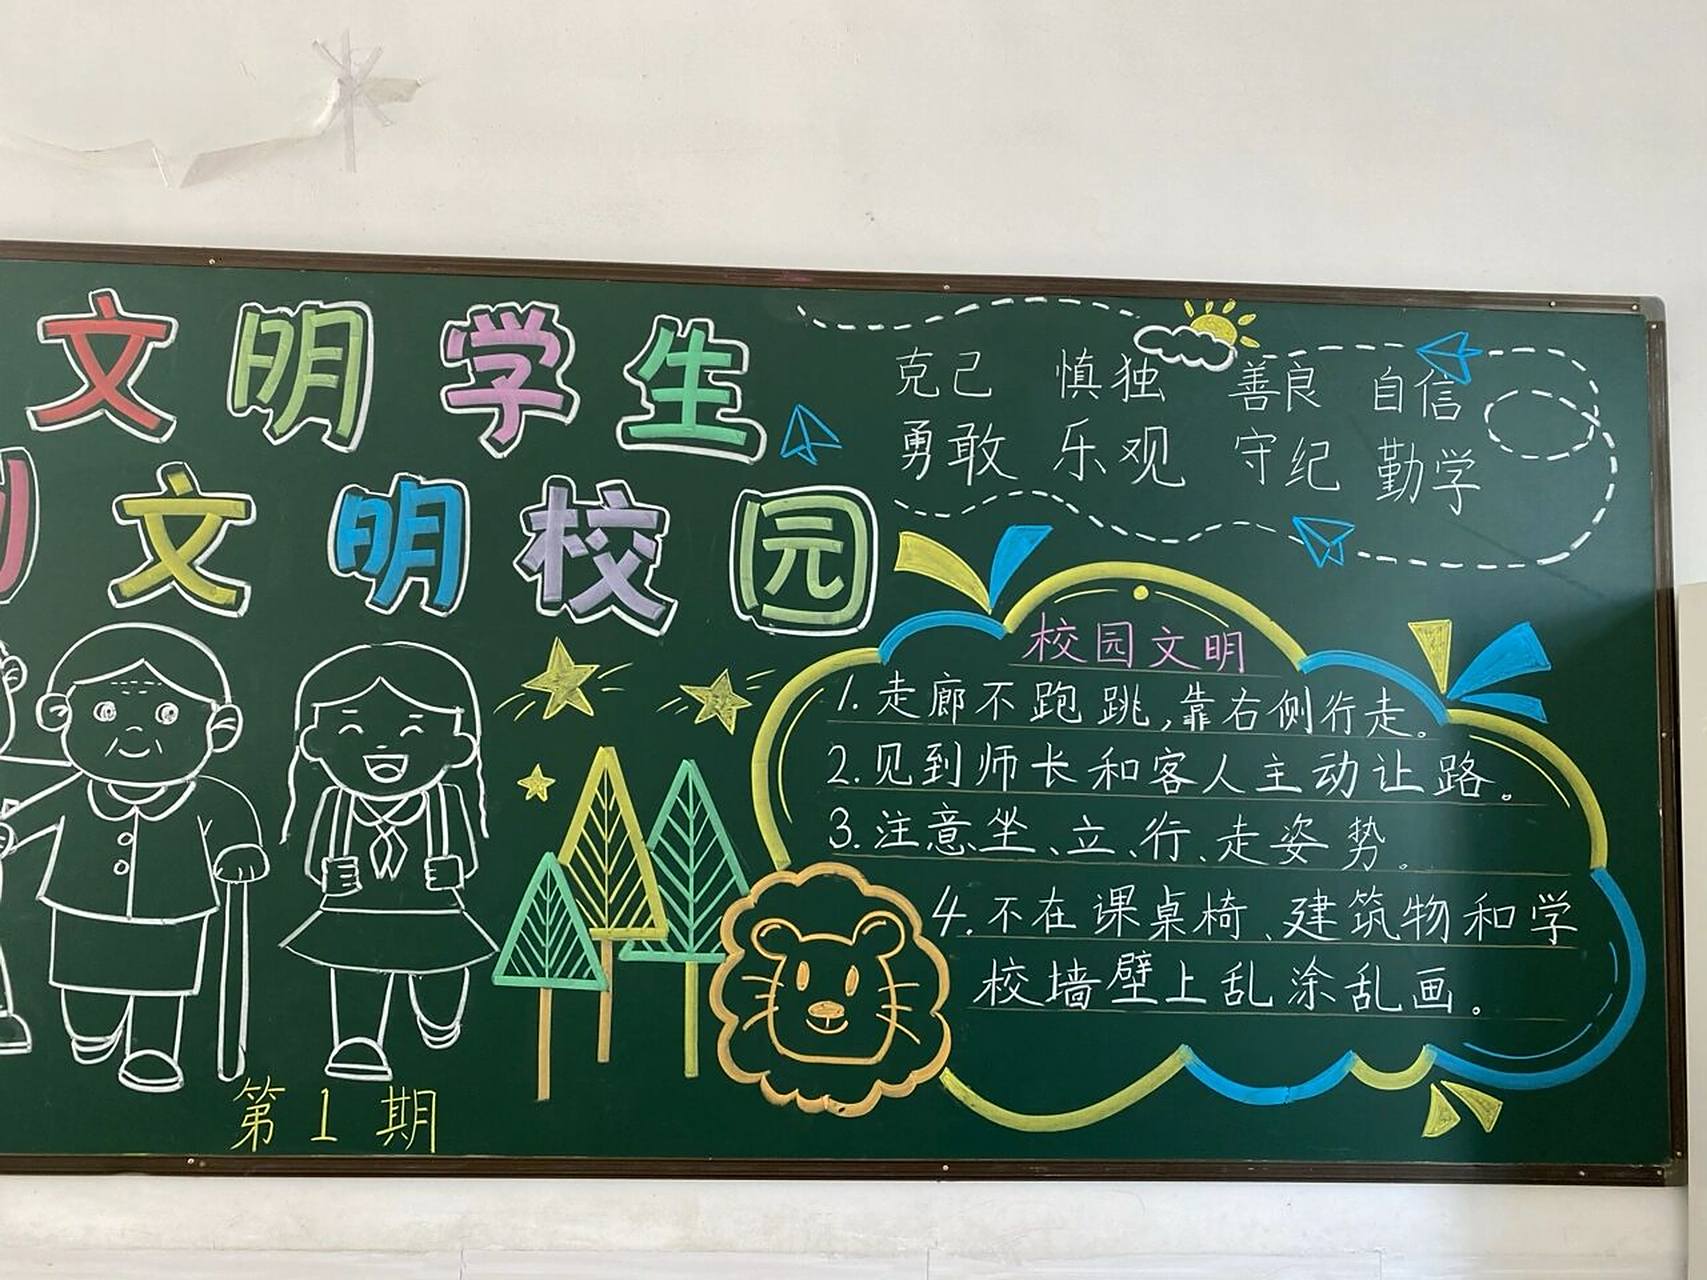 文明学生
创文明校园
克己 慎独 善良 自信
勇敢 乐观 守纪 勤学
校园文明
1.走廊不跑跳,靠右侧行走。
2.见到师长和客人主动让路。
3.注意坐、立、行、走姿势。
4.不在课桌椅、建筑物和学
校墙壁上乱涂乱画。
第1期